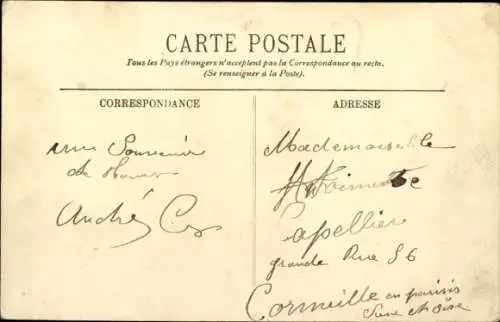 CARTE POSTALE
Tous les Pays étrangers n'acceptent pas la Correspondance au recto.
(Se renseigner à la Poste).
CORRESPONDANCE
un Souvenir
de
André
ADRESSE
Mademoiselle
Capellier
grande Rue 56
Cormeille en parisis
Seine et Oise